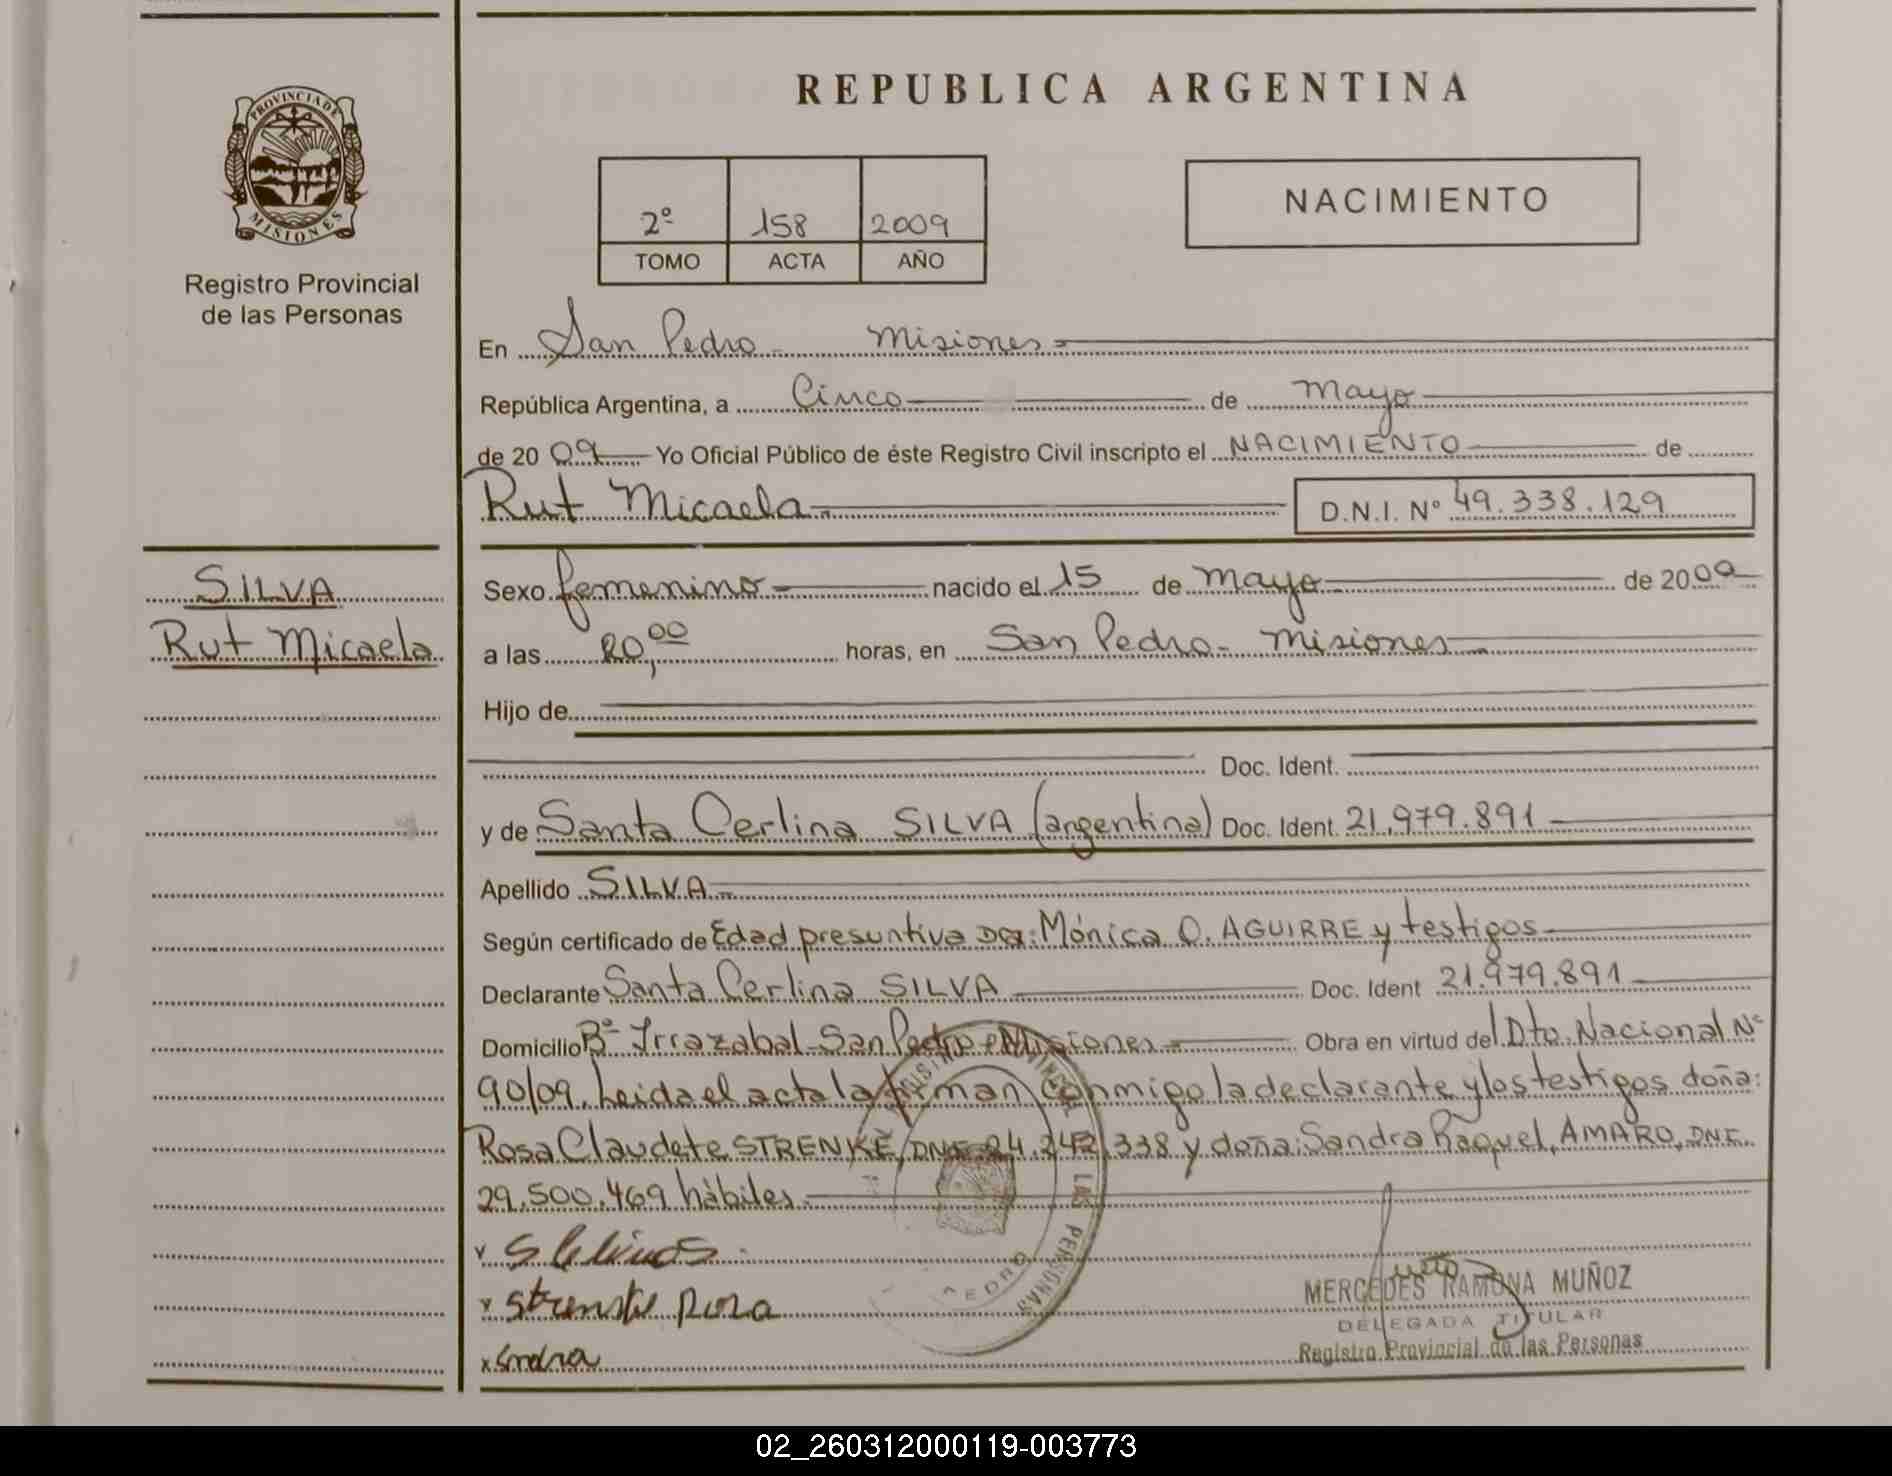 REPUBLICA ARGENTINA
PROVINCIA DE MISIONES
Registro Provincial
de las Personas
2º 158 2009
TOMO ACTA AÑO
NACIMIENTO
En San Pedro - Misiones
República Argentina, a Cinco de Mayo
de 2009 Yo Oficial Público de éste Registro Civil inscripto el NACIMIENTO de
Rut Micaela D.N.I. Nº 49.338.129
SILVA
Rut Micaela
Sexo femenino nacido el 15 de mayo de 2000
a las 20,00 horas, en San Pedro - Misiones
Hijo de
Doc. Ident.
y de Santa Cerlina SILVA (argentina) Doc. Ident. 21.979.891
Apellido SILVA
Según certificado de Edad presuntiva Dra: Mónica O. AGUIRRE y testigos
Declarante Santa Cerlina SILVA Doc. Ident 21.979.891
Domicilio Bº Irrazabal - San Pedro - Misiones Obra en virtud del Dto. Nacional Nº
90/09. Leida el acta la firman conmigo la declarante y los testigos doña:
Rosa Claudete STRENKE, DNI. 24.242.338 y doña: Sandra Raquel, AMARO, DNI.
29.500.469 hábiles.
Strenske Rosa
MERCEDES RAMONA MUÑOZ
DELEGADA TITULAR
Registro Provincial de las Personas
Sandra
LAS PERSONAS
PEDRO
02_260312000119-003773